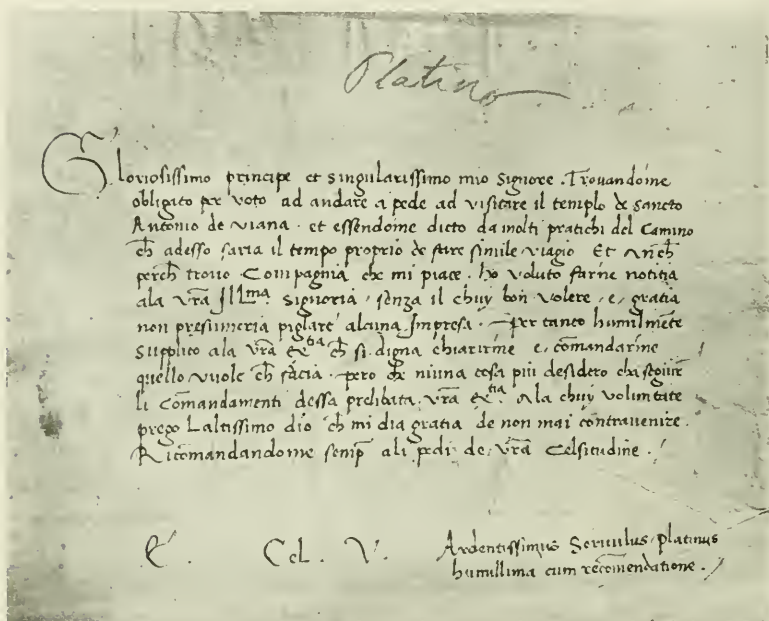 Platino
Gloriosissimo principe et singularissimo mio Signore. Trovandome
obligato per voto ad andare a pede ad visitare il templo de sancto
Antonio de viana. et essendome dicto da molti pratichi del Camino
ch̄ adesso saria il tempo proprio de fare simile viagio Et anch̄
perch̄ trovo Compagnia che mi piace. ho voluto farne notitia
ala vr̄a Jll.ma Signoria, senza il chuy bon volere, e, gratia
non presumeria pigliare alcuna Impresa. Per tanto humilmēte
Supplico ala vr̄a ex.tia ch̄ si digna chiarirme e, comandarme
quello vuole ch̄ facia. pero che niuna cosa piu desidero cha seguire
li Comandamenti dessa prelibata vr̄a ex.tia Ala chuy voluntate
prego Laltissimo dio ch̄ mi dia gratia de non mai contravenire.
Ricomandandome semp̄ ali pedi de, vr̄a Celsitudine.
E. Cel. V.
Ardentissimus Servulus, platinus
humillima cum recōmendatione.